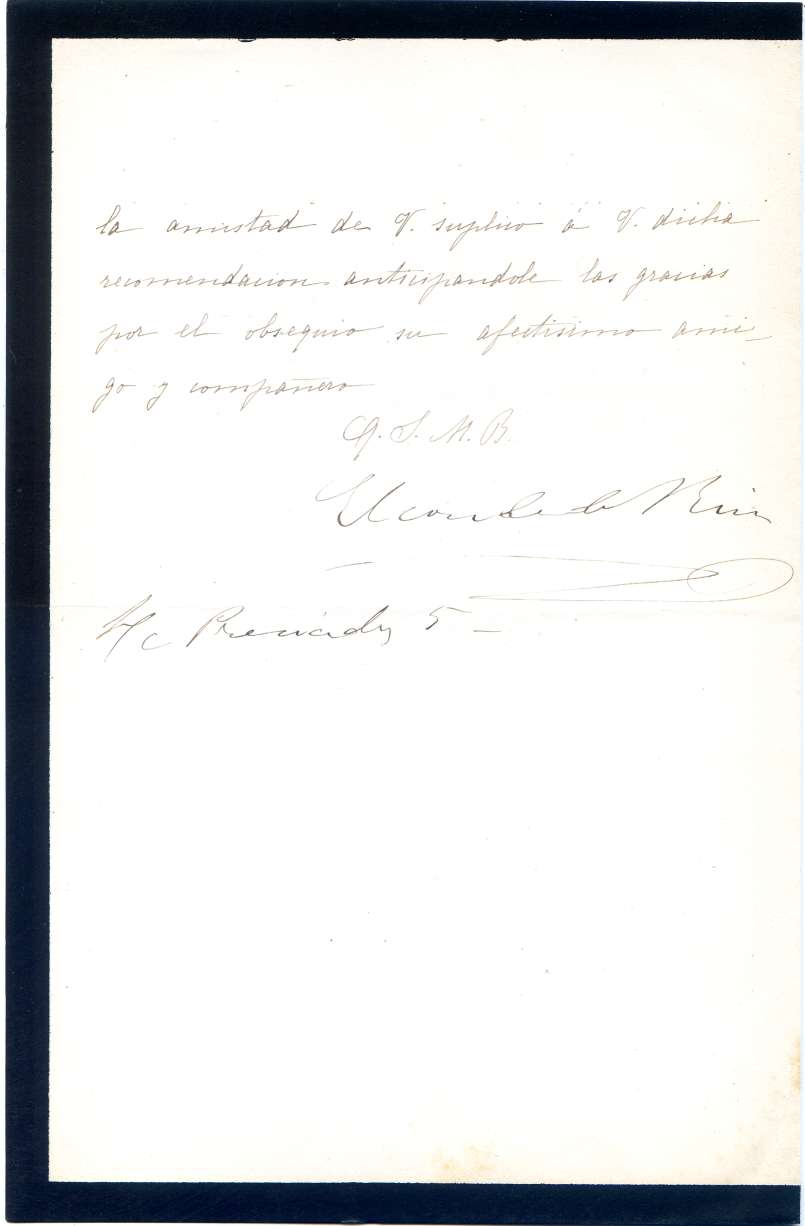 la amistad de V. suplico á V. dicha
recomendacion anticipandole las gracias
por el obsequio su afectisimo ami-
go y compañero
Q. S. M. B.
El conde de
S/c Preciados 5 –